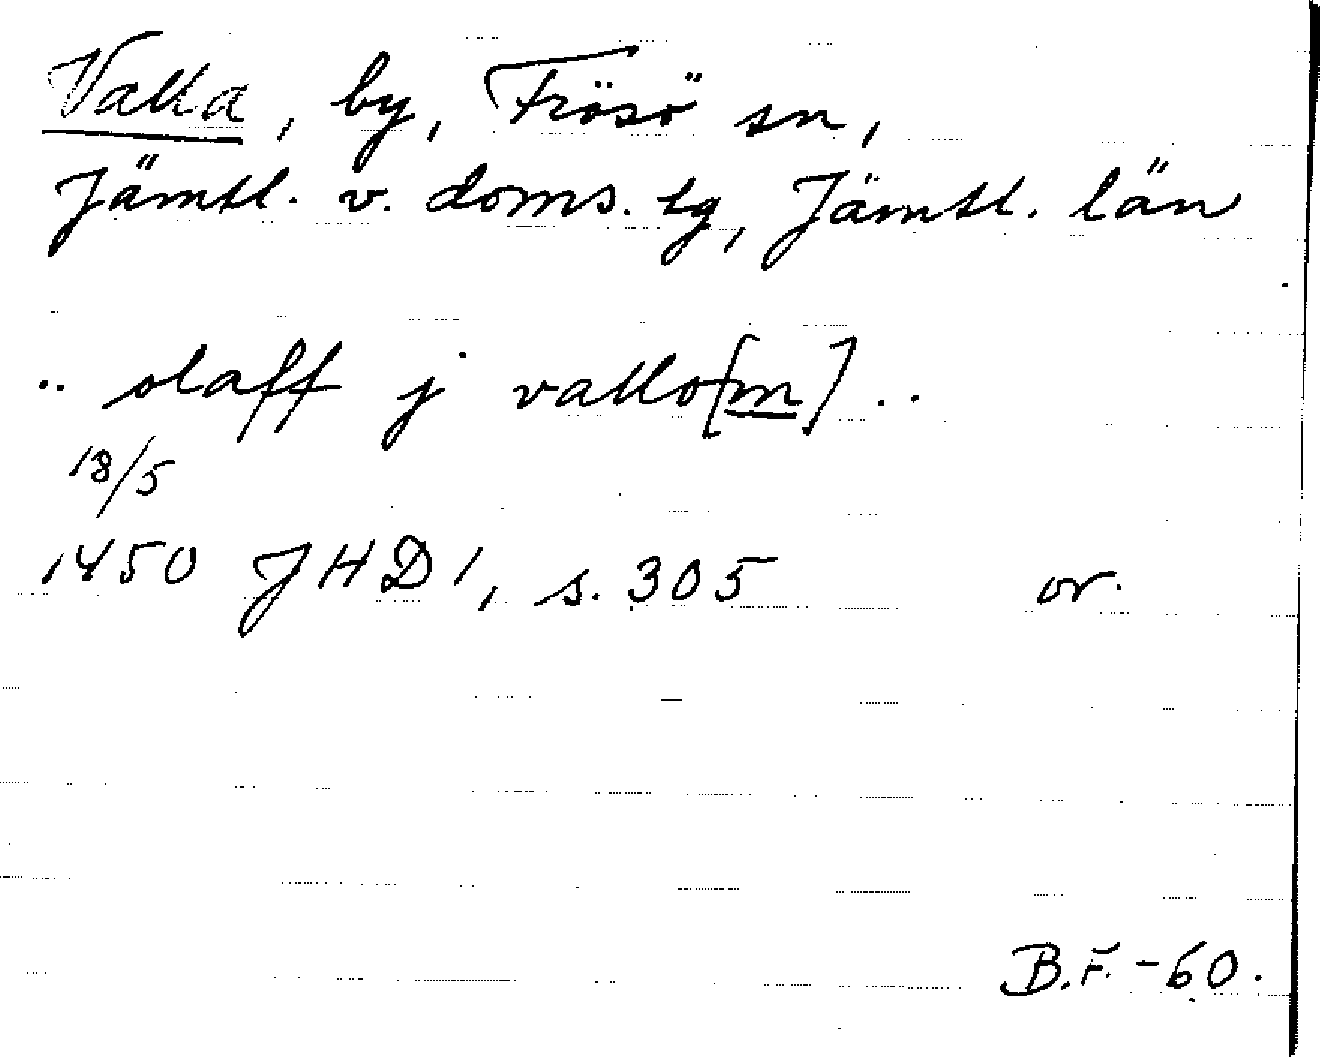 Valla, by, Frösö sn,
Jämtl. v. doms. tg, Jämtl. län
.. olaff j vallo[m] ..
18/5
1450 JHD 1, s. 305 or.
B.F. -60.